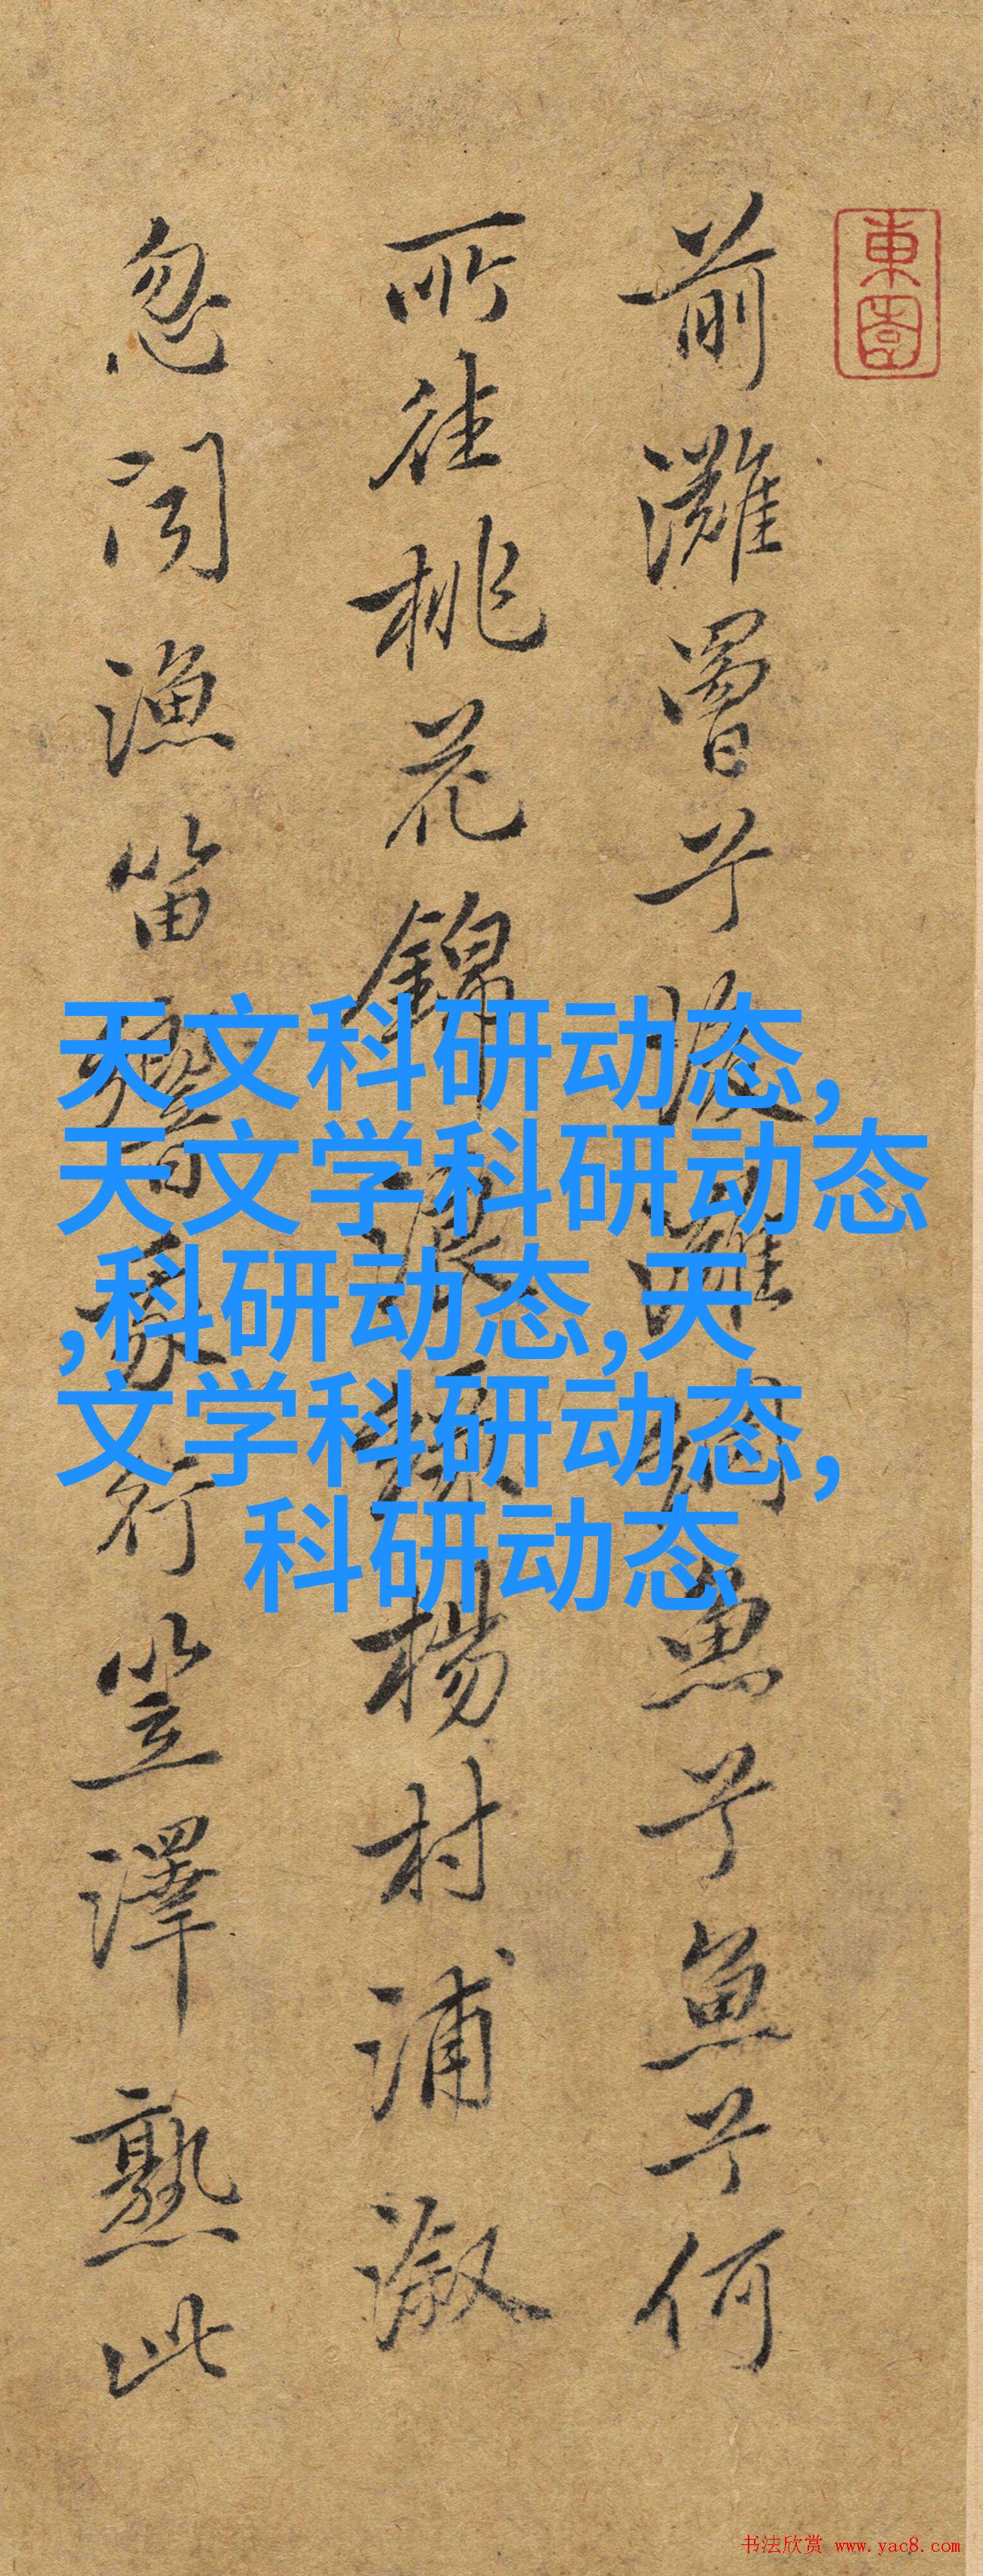 東園
前灘罾兮後灘網魚兮魚兮何
所往桃花錦浪綠楊村浦溆
忽聞漁笛響行笠澤熟此
天文科研动态,
天文学科研动态
,科研动态,天
文学科研动态,
科研动态
书法欣赏 www.yac8.com